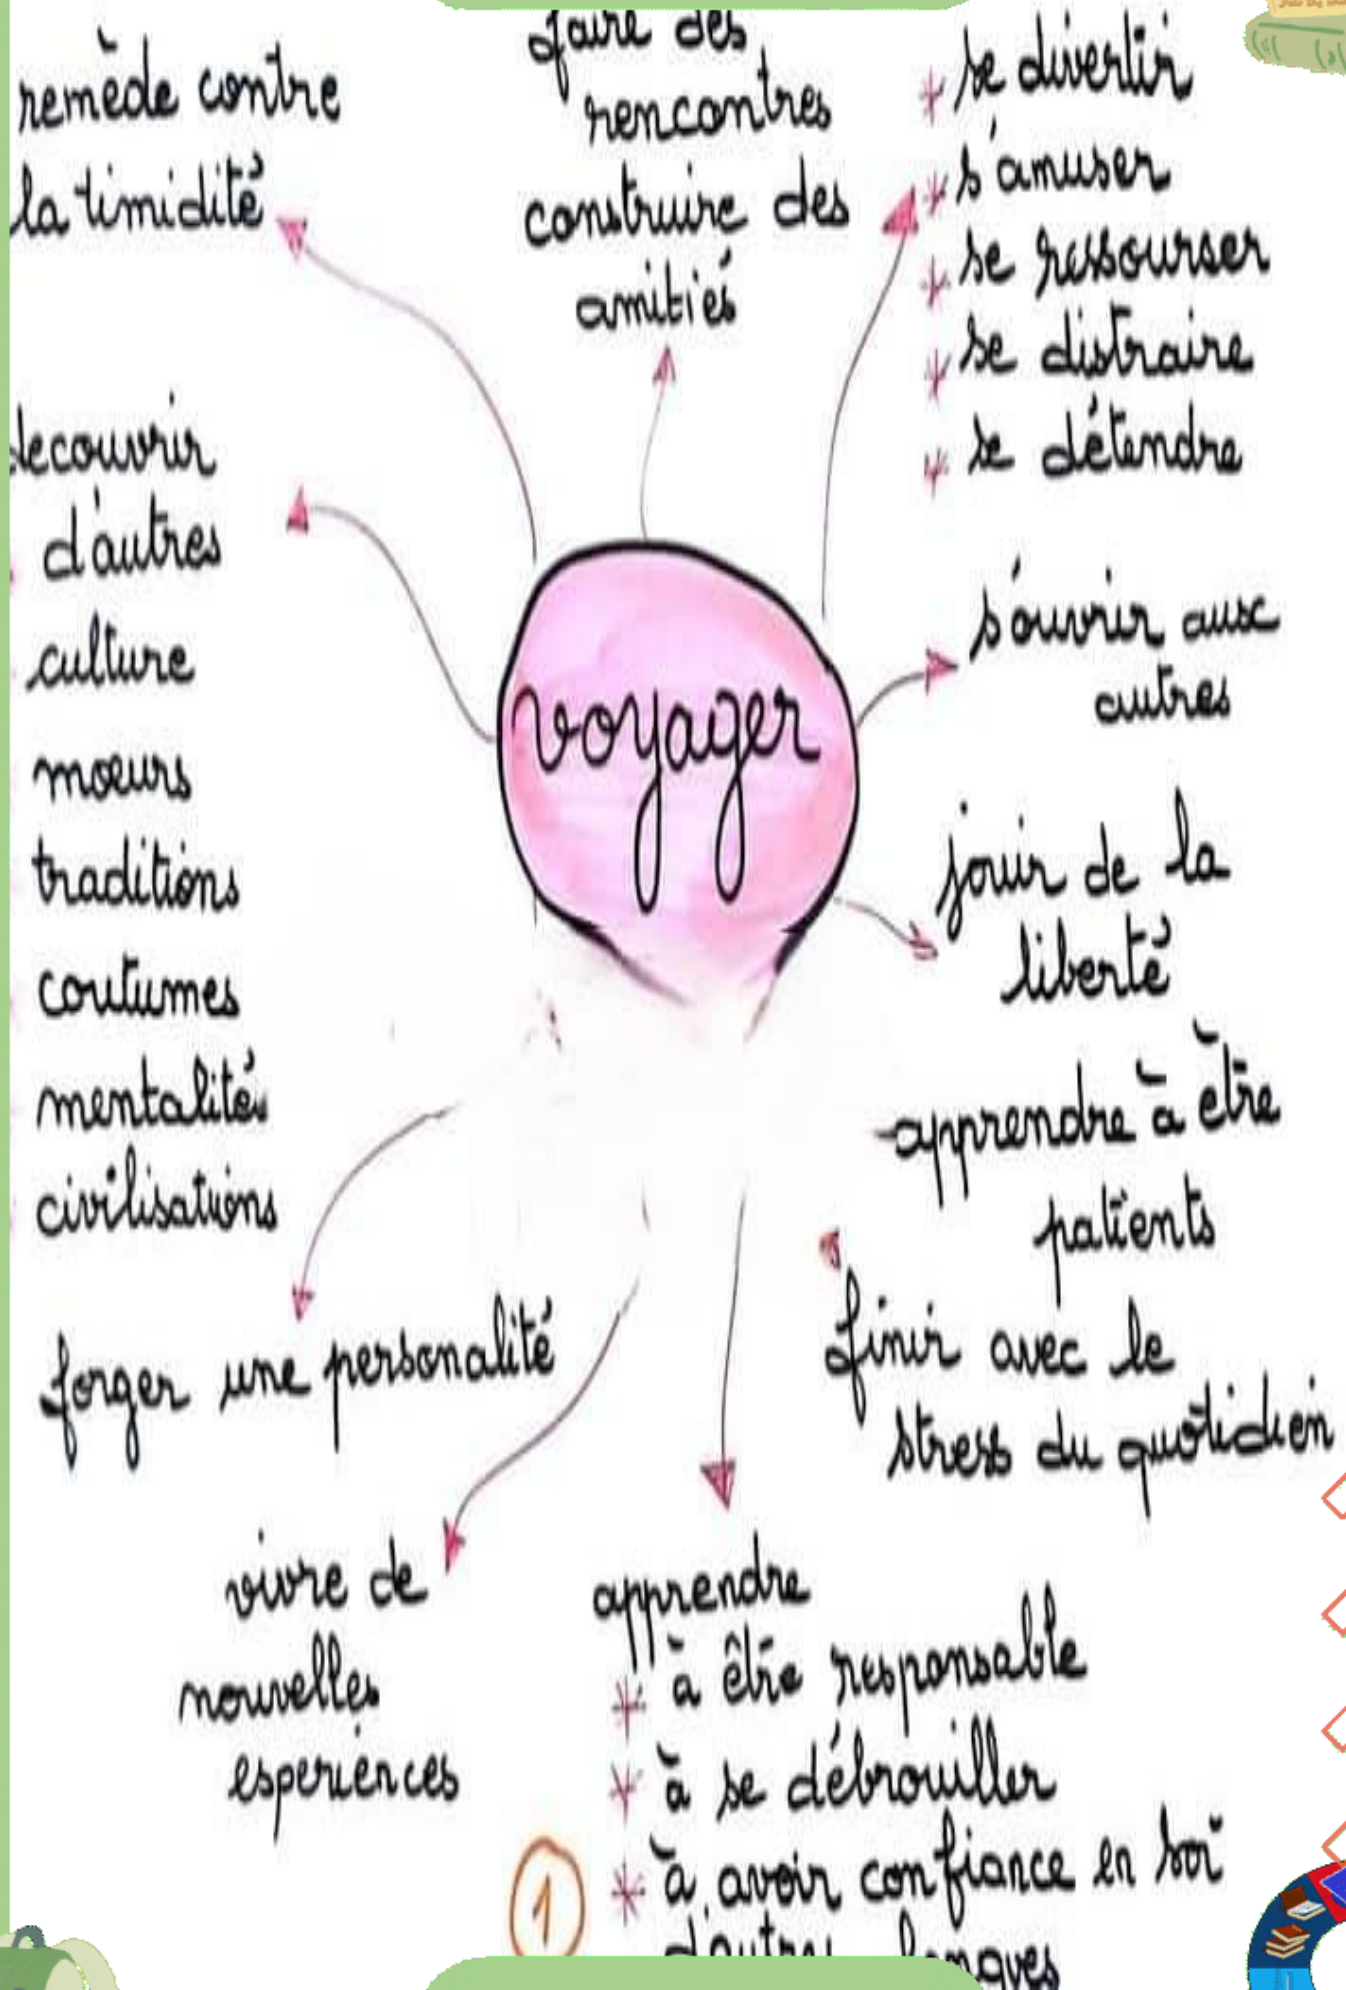 remède contre
la timidité
faire des
rencontres
construire des
amitiés
se divertir
s'amuser
se ressourser
se distraire
se détendre
decouvrir
d'autres
culture
mœurs
traditions
coutumes
mentalités
civilisations
voyager
s'ouvrir aux
autres
jouir de la
liberté
apprendre à être
patients
finir avec le
stress du quotidien
forger une personalité
vivre de
nouvelles
esperiences
apprendre
à être responsable
à se débrouiller
à avoir confiance en soi
d'autres langues
1